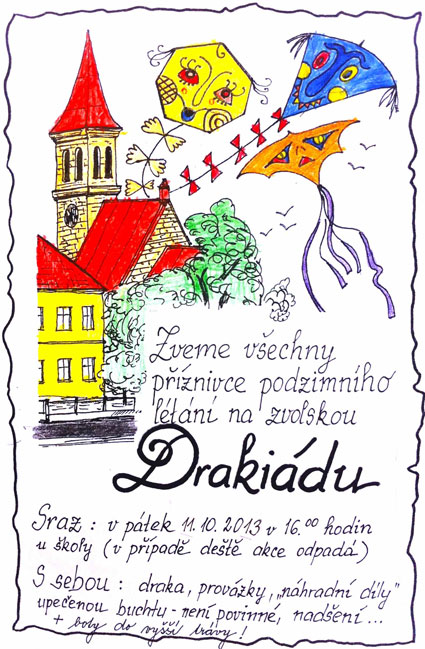 Zveme všechny
příznivce podzimního
létání na zvolskou
Drakiádu
Sraz : v pátek 11.10.2013 v 16.00 hodin
u školy (v případě deště akce odpadá)
S sebou : draka, provázky, „náhradní díly"
upečenou buchtu - není povinné, nadšení...
+ boty do vyšší trávy!